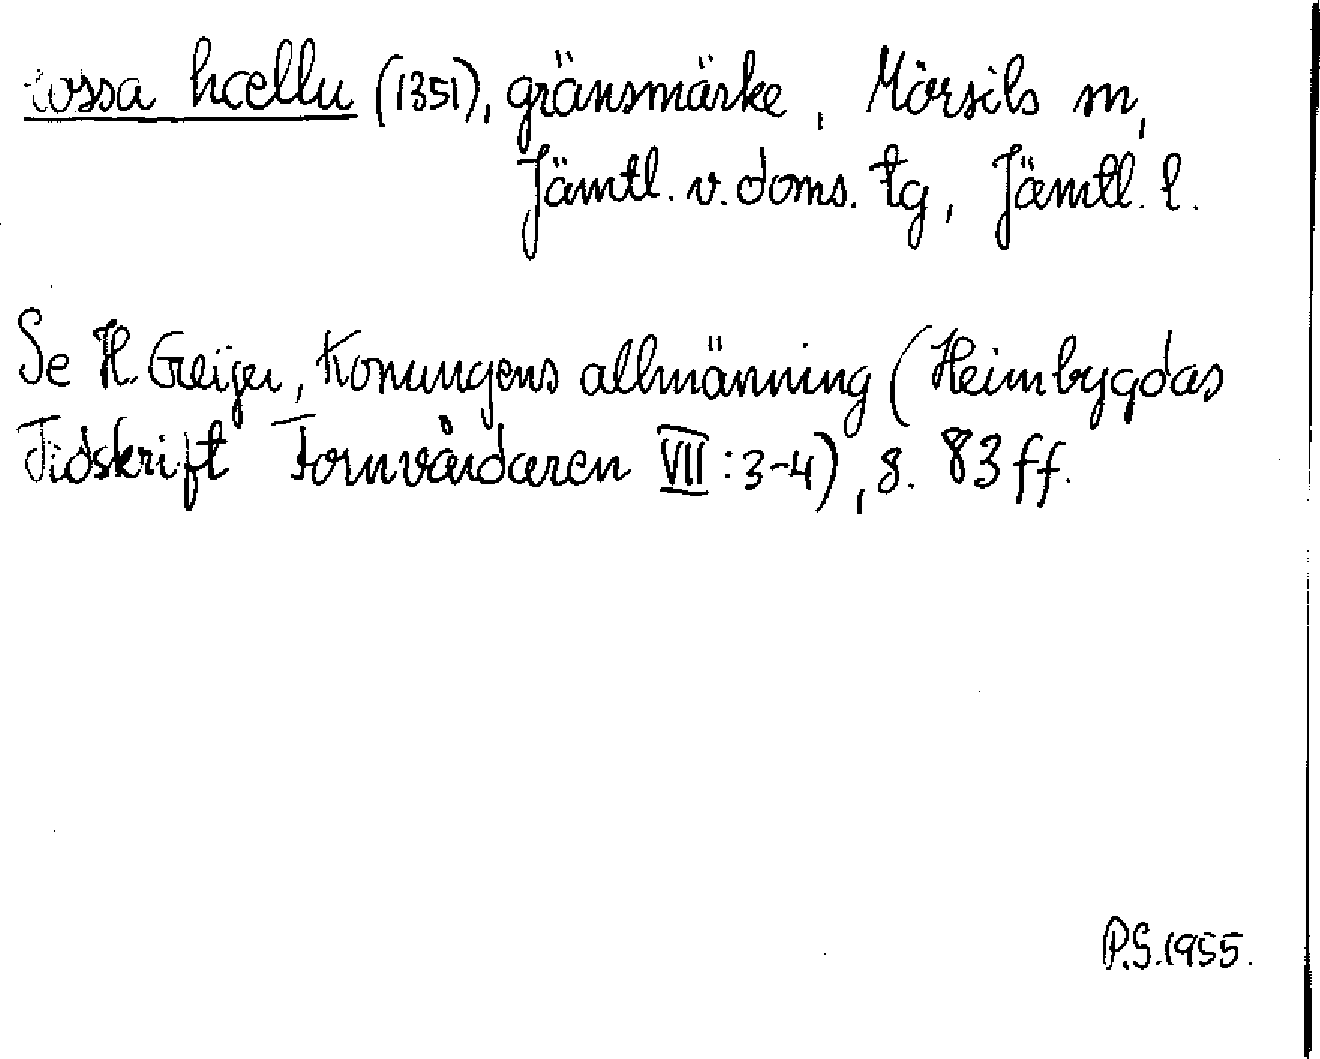 tossa hællu (1351), gränsmärke, Mörsils sn,
Jämtl. v. doms. tg, Jämtl. l.
Se H. Geijer, Konungens allmänning (Heimbygdas
Tidskrift Fornvårdaren VII:3-4), s. 83 ff.
P.S. 1955.